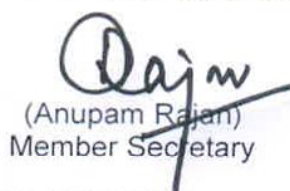 Rajan
(Anupam Rajan)
Member Secretary